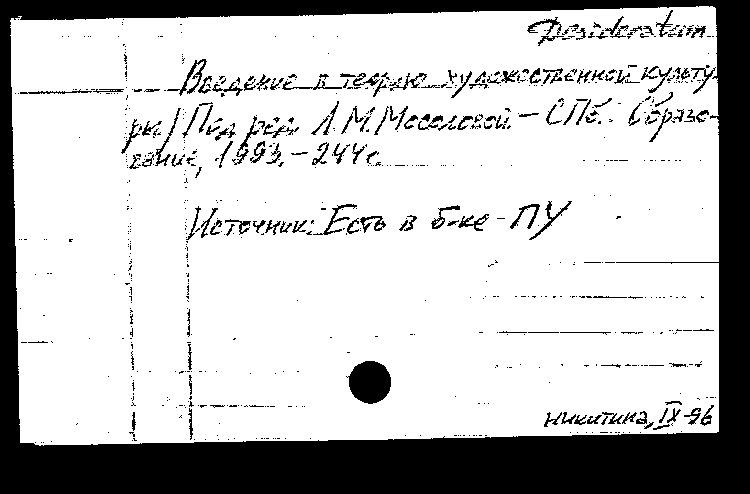 Desideratum
Введение в теорию художественной культу-
ры / Под ред. Л.М. Мосоловой. – СПб.: Образо-
вание, 1993. – 244 с.
Источник: Есть в б-ке ПУ
Никитина, IX-96